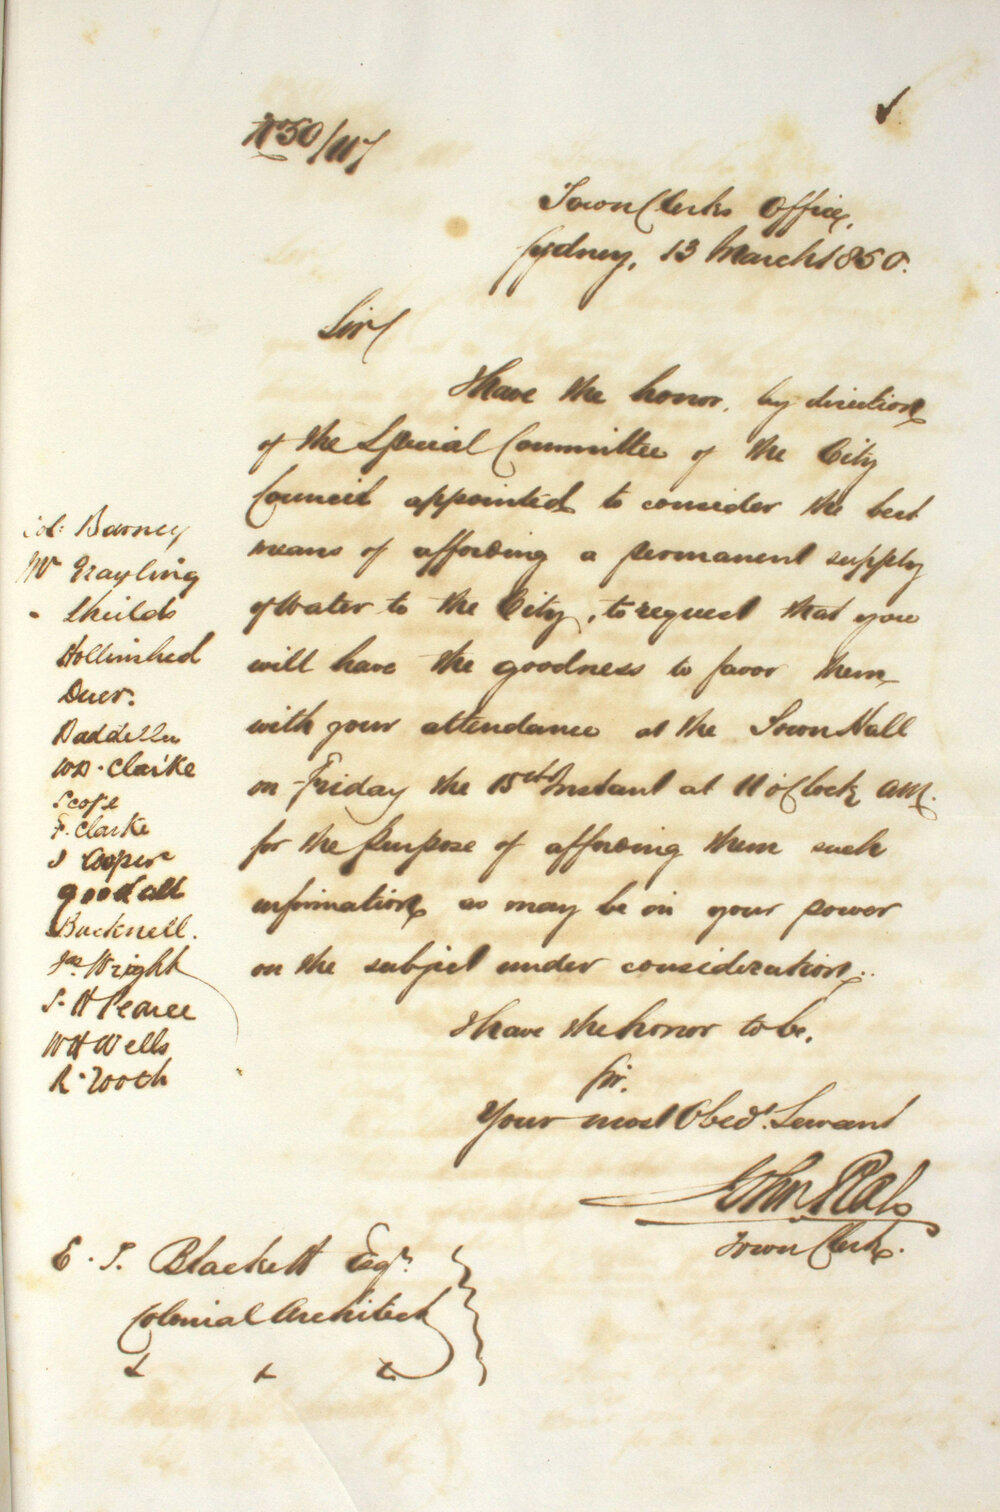 No 50/117
Town Clerks Office,
Sydney, 13 March 1850.
Sir
I have the honor, by direction
of the Special Committee of the City
Council appointed to consider the best
means of affording a permanent supply
of Water to the City, to request that you
will have the goodness to favor them
with your attendance at the Town Hall
on Friday the 15th Instant at 11 o'Clock AM.
for the purpose of affording them such
information as may be in your power
on the subject under consideration.
I have the honor to be,
Sir.
Your most Obedt. Servant
John Rae
Town Clerk.
Col: Barney
Mr Grayling
" Shields
Hollinshed
Duer.
WD. Clarke
Scope
F. Clarke
Cooper
Goodall
Bucknell.
Jas Wright
S. H Pearce
W H Wells
R. Tooth
E. T. Blackett Esqr.
Colonial Architect